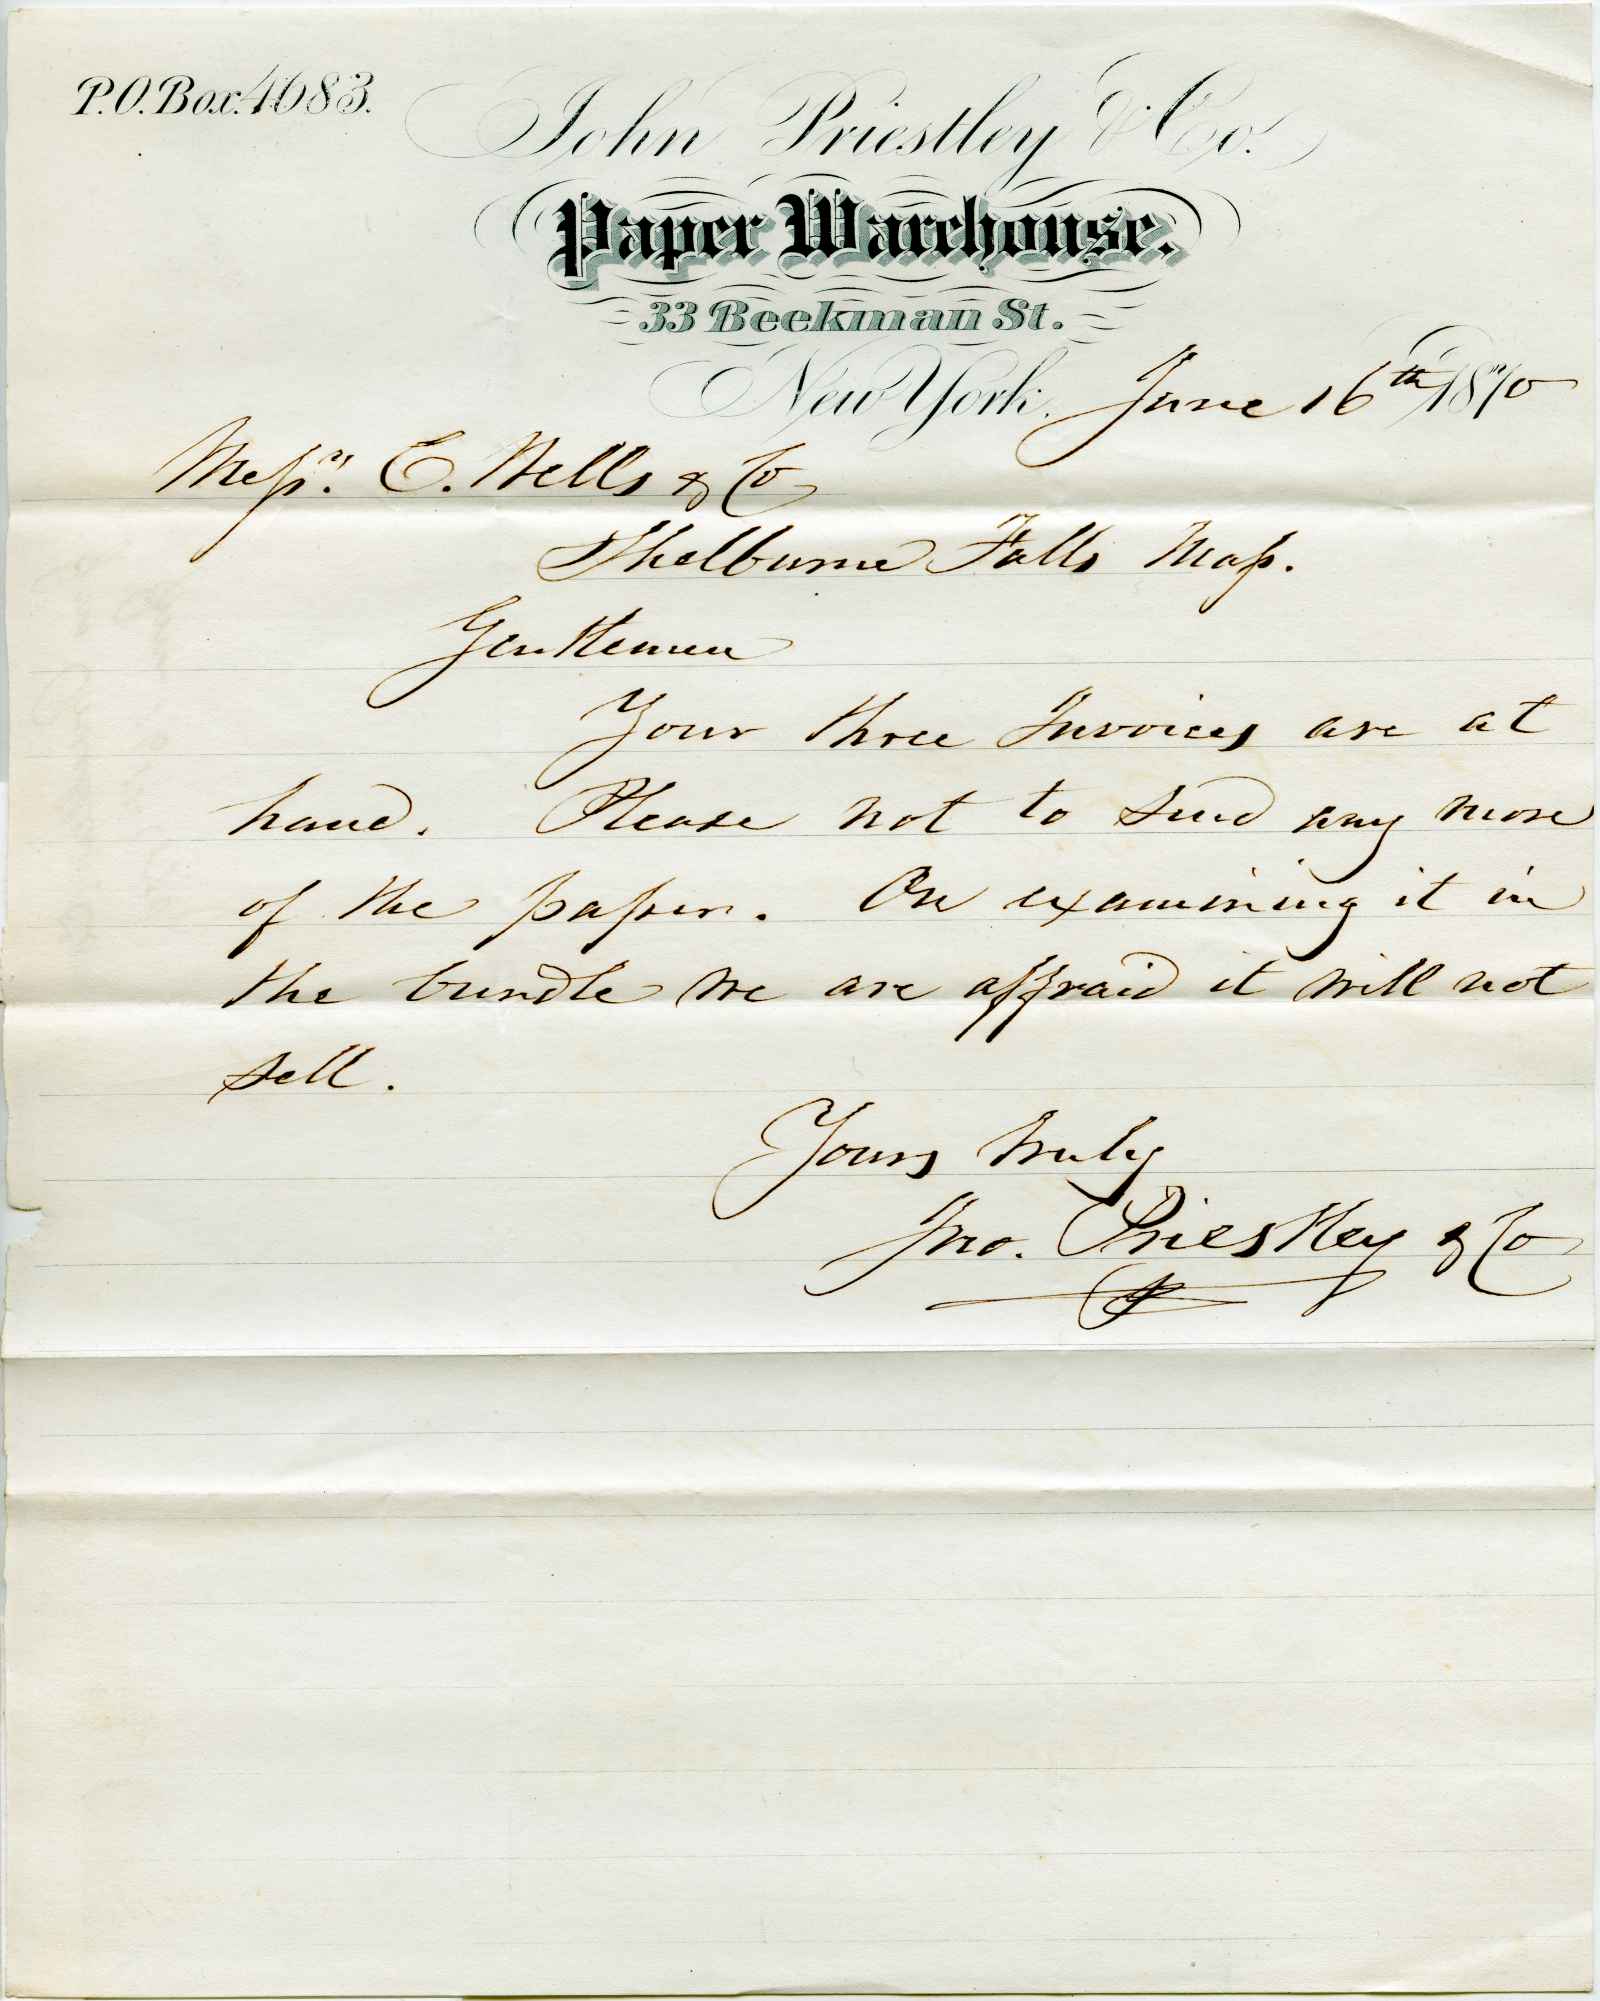 P.O. Box. 4683.
John Priestley & Co.
Paper Warehouse.
33 Beekman St.
New York. June 16th 1870
Messrs. E. Wells & Co
Shelburne Falls Mass.
Gentlemen
Your three Invoices are at
hand. Please not to send any more
of the paper. On examining it in
the bundle we are affraid it will not
sell.
Yours truly
Jno. Priestley & Co